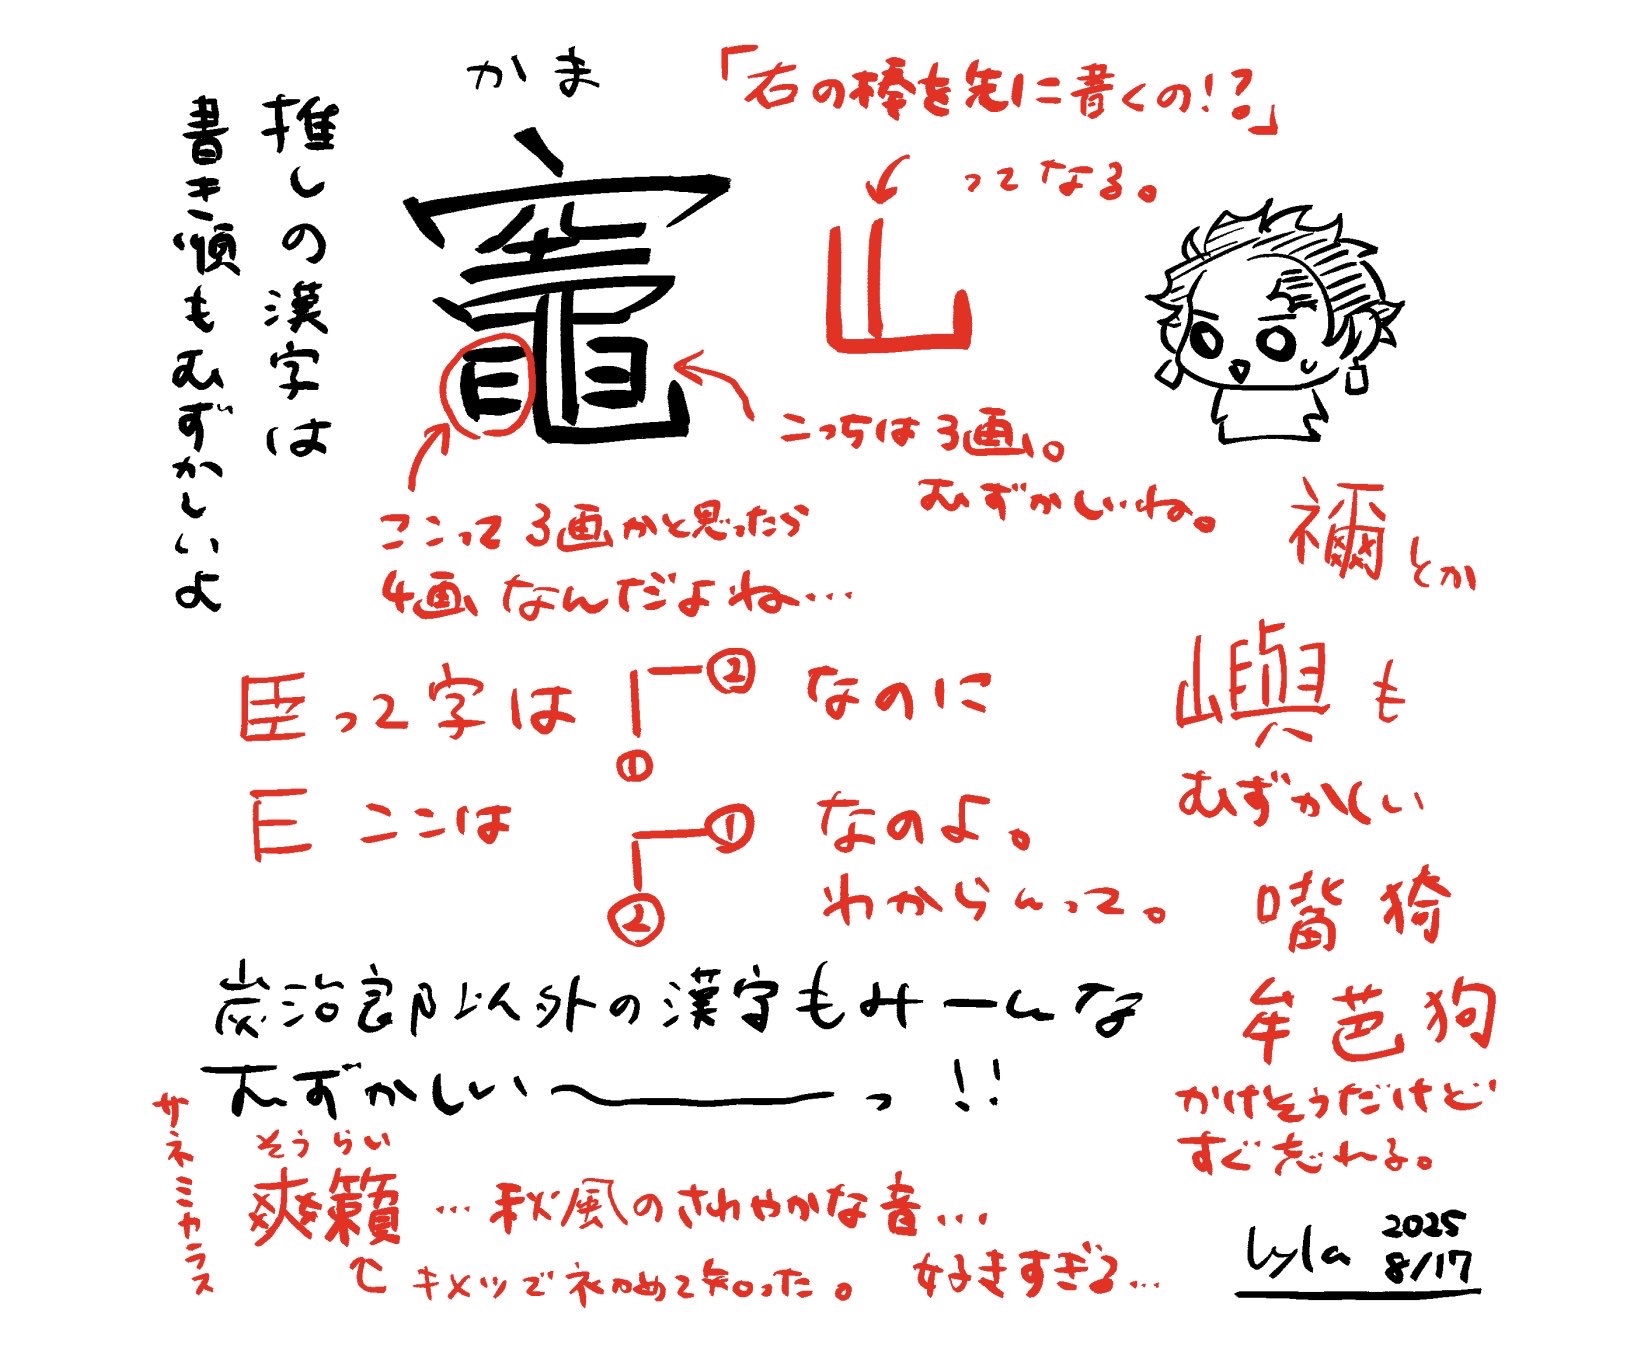 推しの漢字は
書き順もむずかしいよ
かま
竈
「右の棒を先に書くの!?」
ってなる。
山
こっちは3画。
むずかしいね。
ここって3画かと思ったら
4画なんだよね…
臣って字は
①
②
なのに
E ここは
①
②
なのよ。
わからんって。
禰とか
嶼も
むずかしい
嘴 猗
牟 芭 狗
かけそうだけど
すぐ忘れる。
炭治郎以外の漢字もみーんな
むずかしい〜っ!!
サネミカラス
そうらい
爽籟…秋風のさわやかな音…
キメツで初めて知った。
好きすぎる…
Lyla 2025
8/17